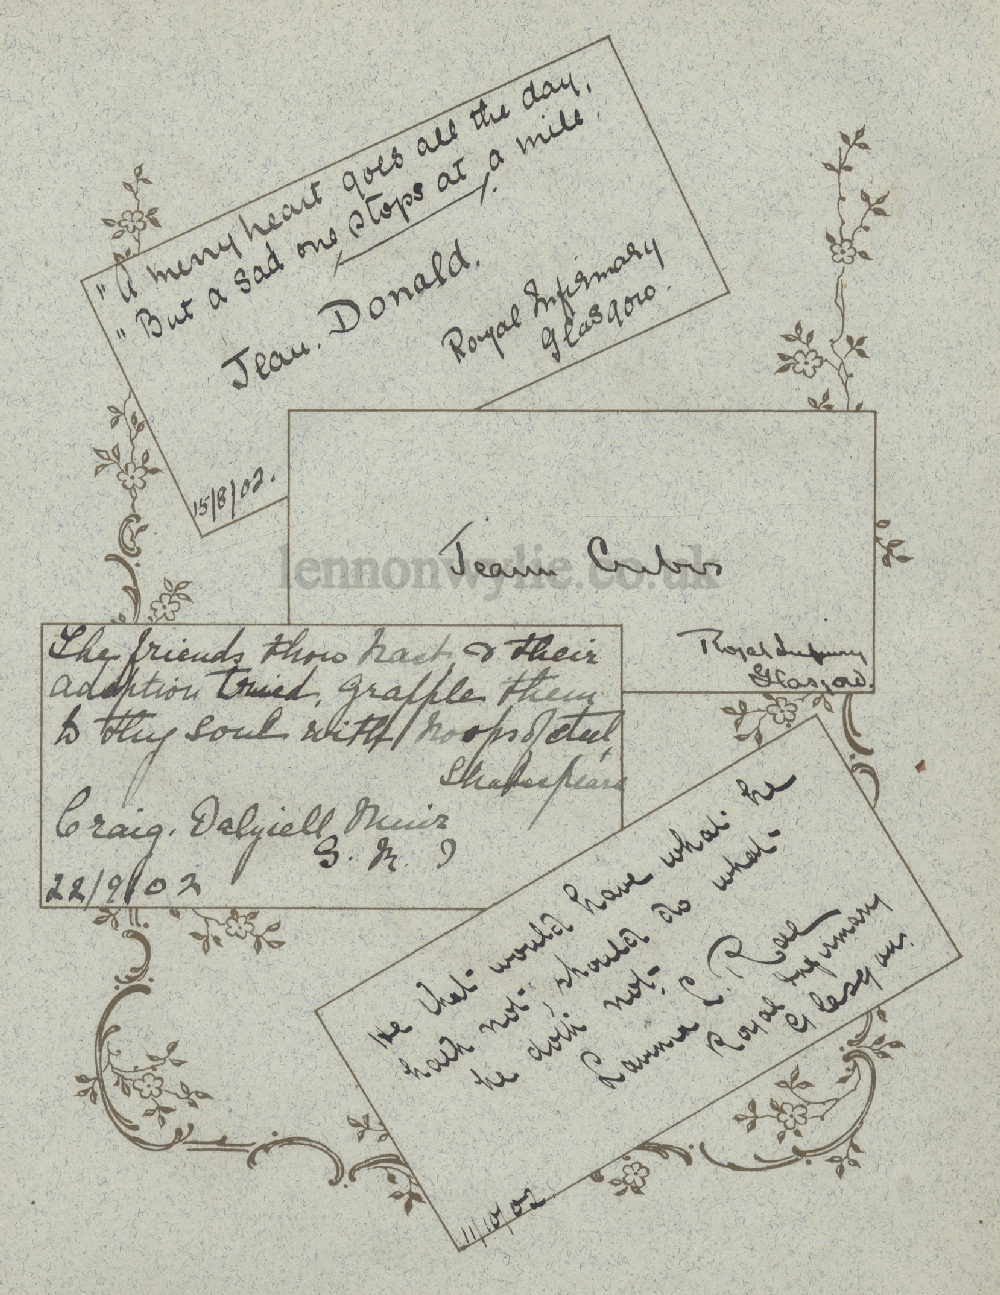 "A merry heart goes all the day,
"But a sad one stops at a mile.
Jean. Donald.
Royal Infirmary
Glasgow.
15/8/02.
lennonwylie.co.uk
Royal Infirmary
Glasgow.
The friends thou hast & their
adoption tried, grapple them
to thy soul with hoops of steel
Shakespeare
Craig. Dalziell Muir
22/9/02
He that would have what he
hath not, should do what
he doth not.
C. Rae
Royal Infirmary
Glasgow.
11/10/02